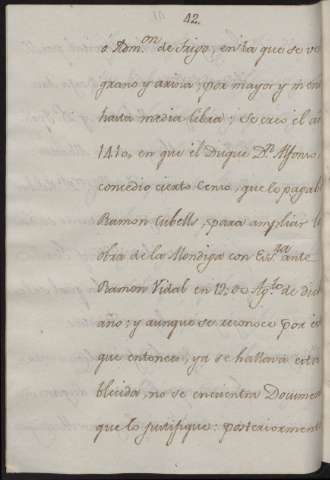 42.
ó Adm.on de trigo, en la que se ve
grano y arina, por mayor y men
hasta media libra; se creó el a
1410, en que el Duque D.n Alfonso,
concedio cierto Censo, que lo pagab
Ramon Cubells, para ampliar l
obra de la Mondiga con Ess.ra ante
Ramon Vidal en 12 de Ag.to de dich
año; y aunque se reconoce por es
que entonces, ya se hallava esta
blecida, no se encuentra Documen
que lo justifique: posteriorment